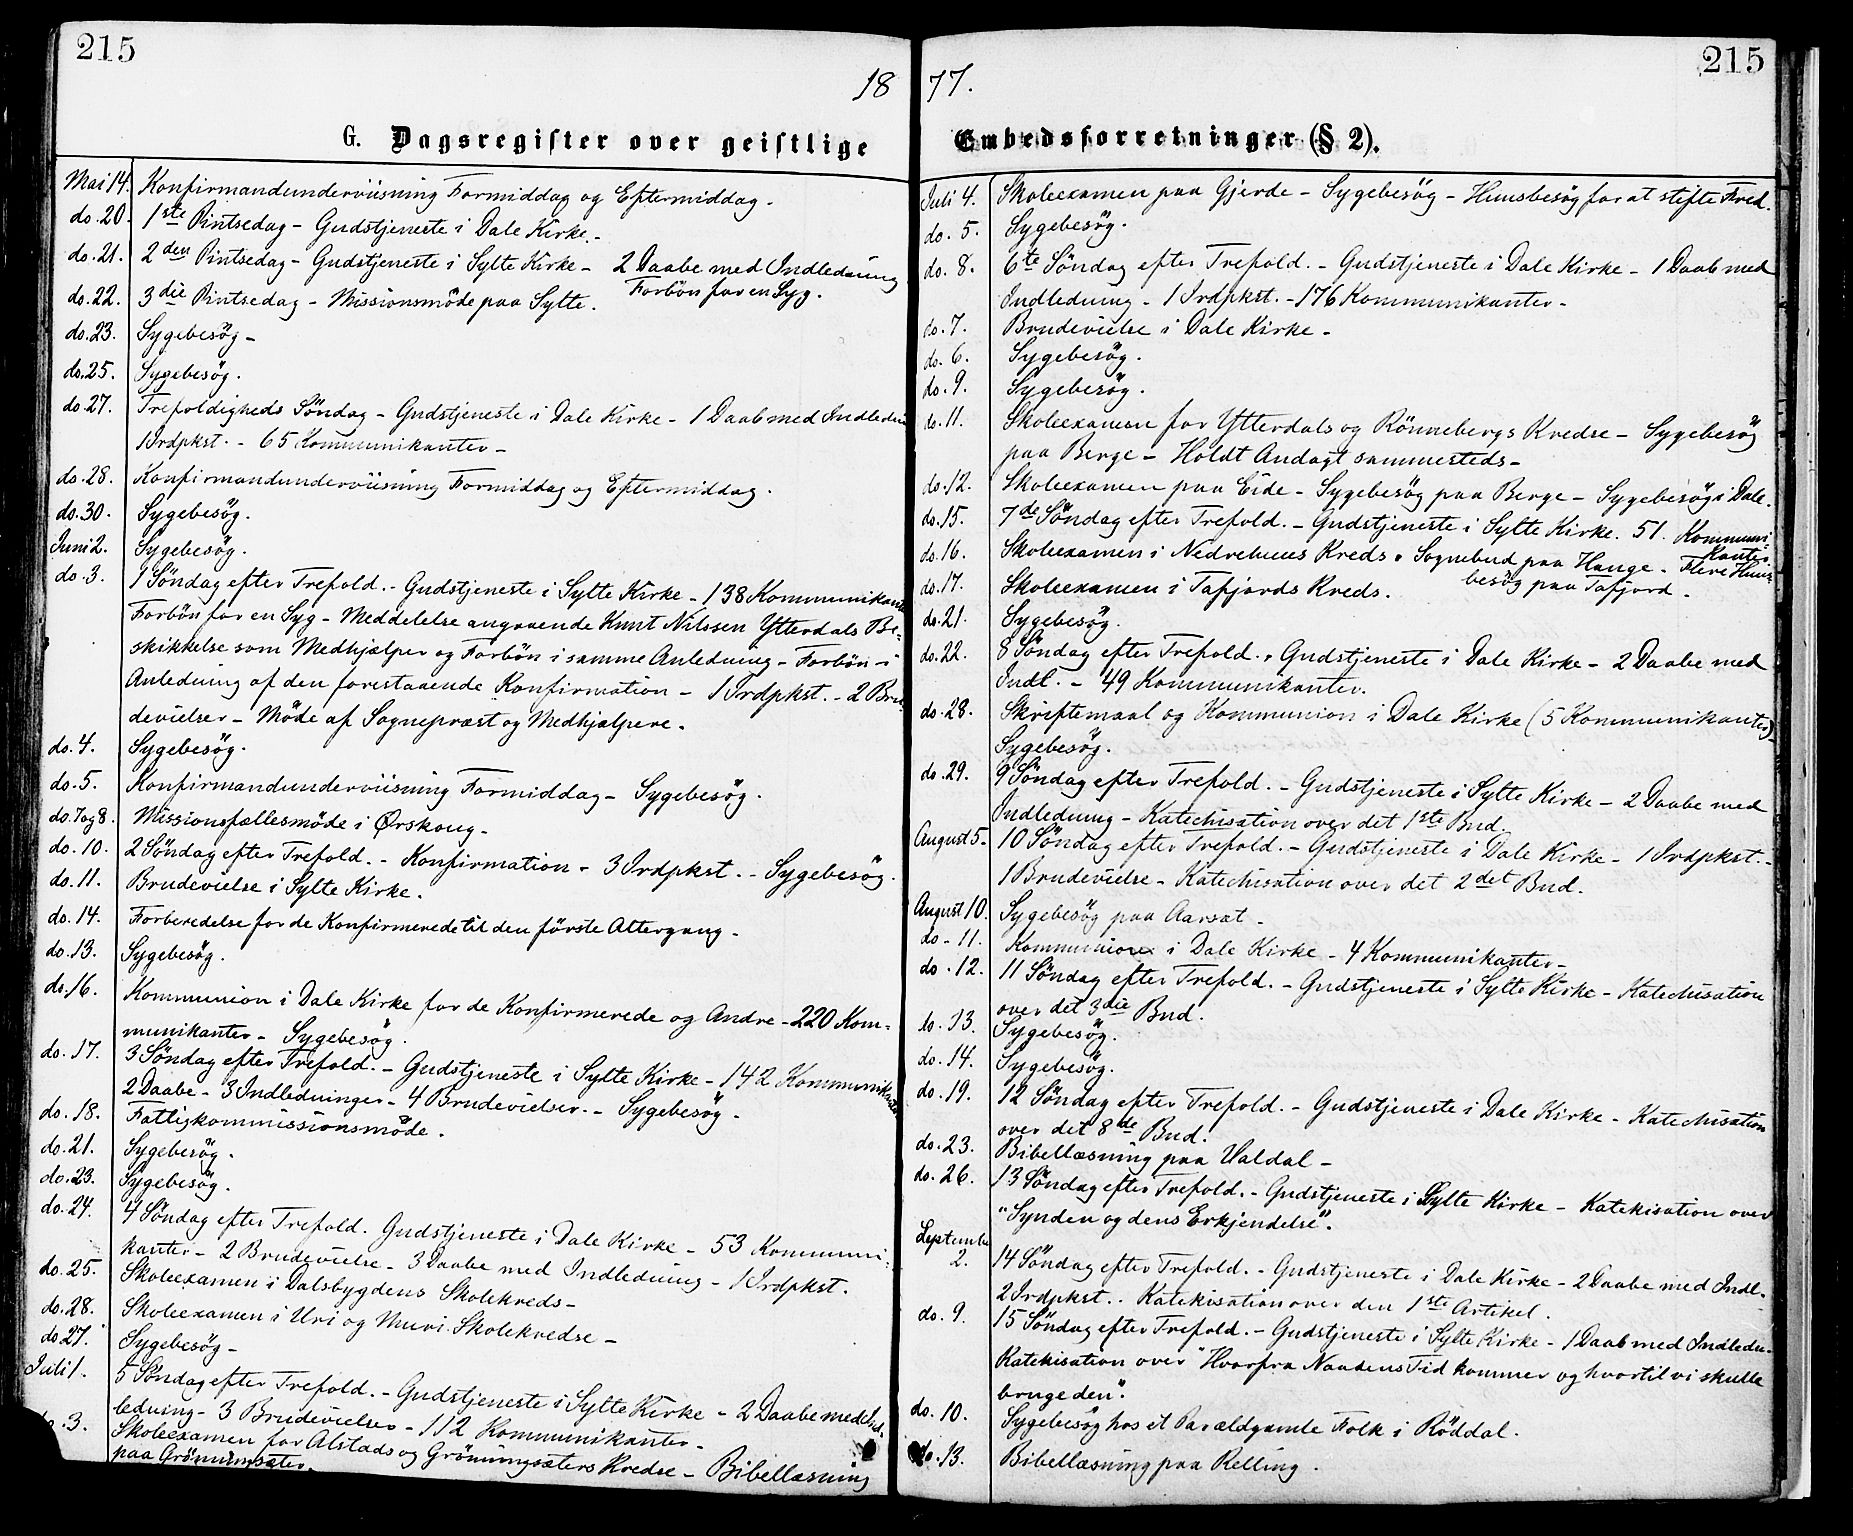 215
18
G. Dagsregister over geistlige
Mai 14. Konfirmandunderviisning Formiddag og Eftermiddag.
do. 20. 1ste Pintsedag - Gudstjeneste i Dale Kirke.-
do. 21. 2den Pintsedag - Gudstjeneste i Sylte Kirke - 2 Daabe med Indledning
Forbön for en Syg.
do. 22. 3die Pintsedag - Missionsmöde paa Sylte.
do. 23. Sygebesög -
do. 25. Sygebesög.
do. 27. Trefoldigheds Söndag - Gudstjeneste i Dale Kirke - 1 Daab med Indledn
1 Irdpkst. - 65 Kommunikanter -
do. 28. Konfirmandunderviisning Formiddag og Eftermiddag.
do. 30. Sygebesög.
Juni 2. Sygebesög.
do. 3. 1 Söndag efter Trefold. - Gudstjeneste i Sylte Kirke - 138 Kommunikante
Forbön for en Syg - Meddelelse angaaende Knut Nilssen Ytterdals Be-
skikkelse som Medhjælper og Forbön i samme Anledning - Forbön i
Anledning af den forestaaende Konfirmation - 1 Irdpkst. - 2 Bru-
devielser - Möde af Sognepræst og Medhjælpere.
do. 4. Sygebesög.
do. 5. Konfirmandunderviisning Formiddag - Sygebesög.
do. 7 og 8. Missionsfællesmöde i Ørskoug -
do. 10. 2 Söndag efter Trefold. - Konfirmation - 3 Irdpkst. - Sygebesög.
do. 11. Brudevielse i Sylte Kirke.
do. 14. Forberedelse for de Konfirmerede til den förste Altergang -
do. 13. Sygebesög.
do. 16. Kommunion i Dale Kirke for de Konfirmerede og Andre - 220 Kom-
munikanter - Sygebesög.
do. 17. 3 Söndag efter Trefold. - Gudstjeneste i Sylte Kirke - 142 Kommunikanter
2 Daabe - 3 Indledninger - 4 Brudevielser. - Sygebesög -
do. 18. Fattigkommissionsmöde.
do. 21. Sygebesög.
do. 23. Sygebesög.
do. 24. 4 Söndag efter Trefold. Gudstjeneste i Dale Kirke - 53 Kommuni-
kanter - 2 Brudevielse - 3 Daabe med Indledning - 1 Irdpkst.
do. 25. Skoleexamen i Dalsbygdens Skolekreds -
do. 28. Skoleexamen i Uri og Muri Skolekredse -
do. 27. Sygebesög -
Juli 1. 5 Söndag efter Trefold. - Gudstjeneste i Sylte Kirke - 2 Daabe med Ind-
ledning - 3 Brudevielser - 112 Kommunikanter -
do. 3. Skoleexamen for Alstads og Gröningsæters Kredse - Bibellæsning
paa Gröningsæter.
215
77.
Embedsforretninger (§ 2).
Juli 4. Skoleexamen paa Gjerde - Sygebesög - Huusbesög for at stifte Fred.
do. 5. Sygebesög.
do. 8. 6te Söndag efter Trefold. - Gudstjeneste i Dale Kirke - 1 Daab med
Indledning - 1 Irdpkst. - 176 Kommunikanter -
do. 7. Brudevielse i Dale Kirke -
do. 6. Sygebesög.
do. 9. Sygebesög.
do. 11. Skoleexamen for Ytterdals og Rönnebergs Kredse - Sygebesög
paa Berge - Holdt Andagt sammesteds -
do. 12. Skoleexamen paa Eide - Sygebesög paa Berge - Sygebesög i Dale.
do. 15. 7de Söndag efter Trefold. - Gudstjeneste i Sylte Kirke. 51. Kommuni-
kanter
do. 16. Skoleexamen i Nedrehuus Kreds. Sognebud paa Hauge - Flere Huus-
besög paa Tafjord -
do. 17. Skoleexamen i Tafjords Kreds.
do. 21. Sygebesög.
do. 22. 8 Söndag efter Trefold. - Gudstjeneste i Dale Kirke - 2 Daabe med
Indl. - 49 Kommunikanter.
do. 28. Skriftemaal og Kommunion i Dale Kirke (5 Kommunikanter)-
Sygebesög.
do. 29. 9 Söndag efter Trefold. - Gudstjeneste i Sylte Kirke - 2 Daabe med
Indledning - Katechisation over det 1ste Bud.
August 5. 10 Söndag efter Trefold. - Gudstjeneste i Dale Kirke - 1 Irdpkst. -
1 Brudevielse - Katechisation over det 2det Bud.
August 10. Sygebesög paa Aarsat -
do. 11. Kommunion i Dale Kirke - 4 Kommunikanter -
do. 12. 11 Söndag efter Trefold. - Gudstjeneste i Sylte Kirke - Katechisation
over det 3die Bud.
do. 13. Sygebesög.
do. 14. Sygebesög.
do. 19. 12 Söndag efter Trefold. - Gudstjeneste i Dale Kirke - Katechisation
over det 8de Bud.
do. 23. Bibellæsning paa Valdal -
do. 26. 13 Söndag efter Trefold. - Gudstjeneste i Sylte Kirke - Katekisation over
"Synden og dens Erkjendelse".
September
2. 14 Söndag efter Trefold. - Gudstjeneste i Dale Kirke - 2 Daabe med Indl.
2 Irdpkst. . Katekisation over den 1ste Artikel.
do. 9. 15 Söndag efter Trefold. - Gudstjeneste i Sylte Kirke - 1 Daab med Indledn-
Katekisation over "Hvorfra Naadens Tid kommer og hvortil vi skulle
bruge den".
do. 10. Sygebesög hos et Par ældgamle Folk i Röddal.
do. 13. Bibellæsning paa Relling.